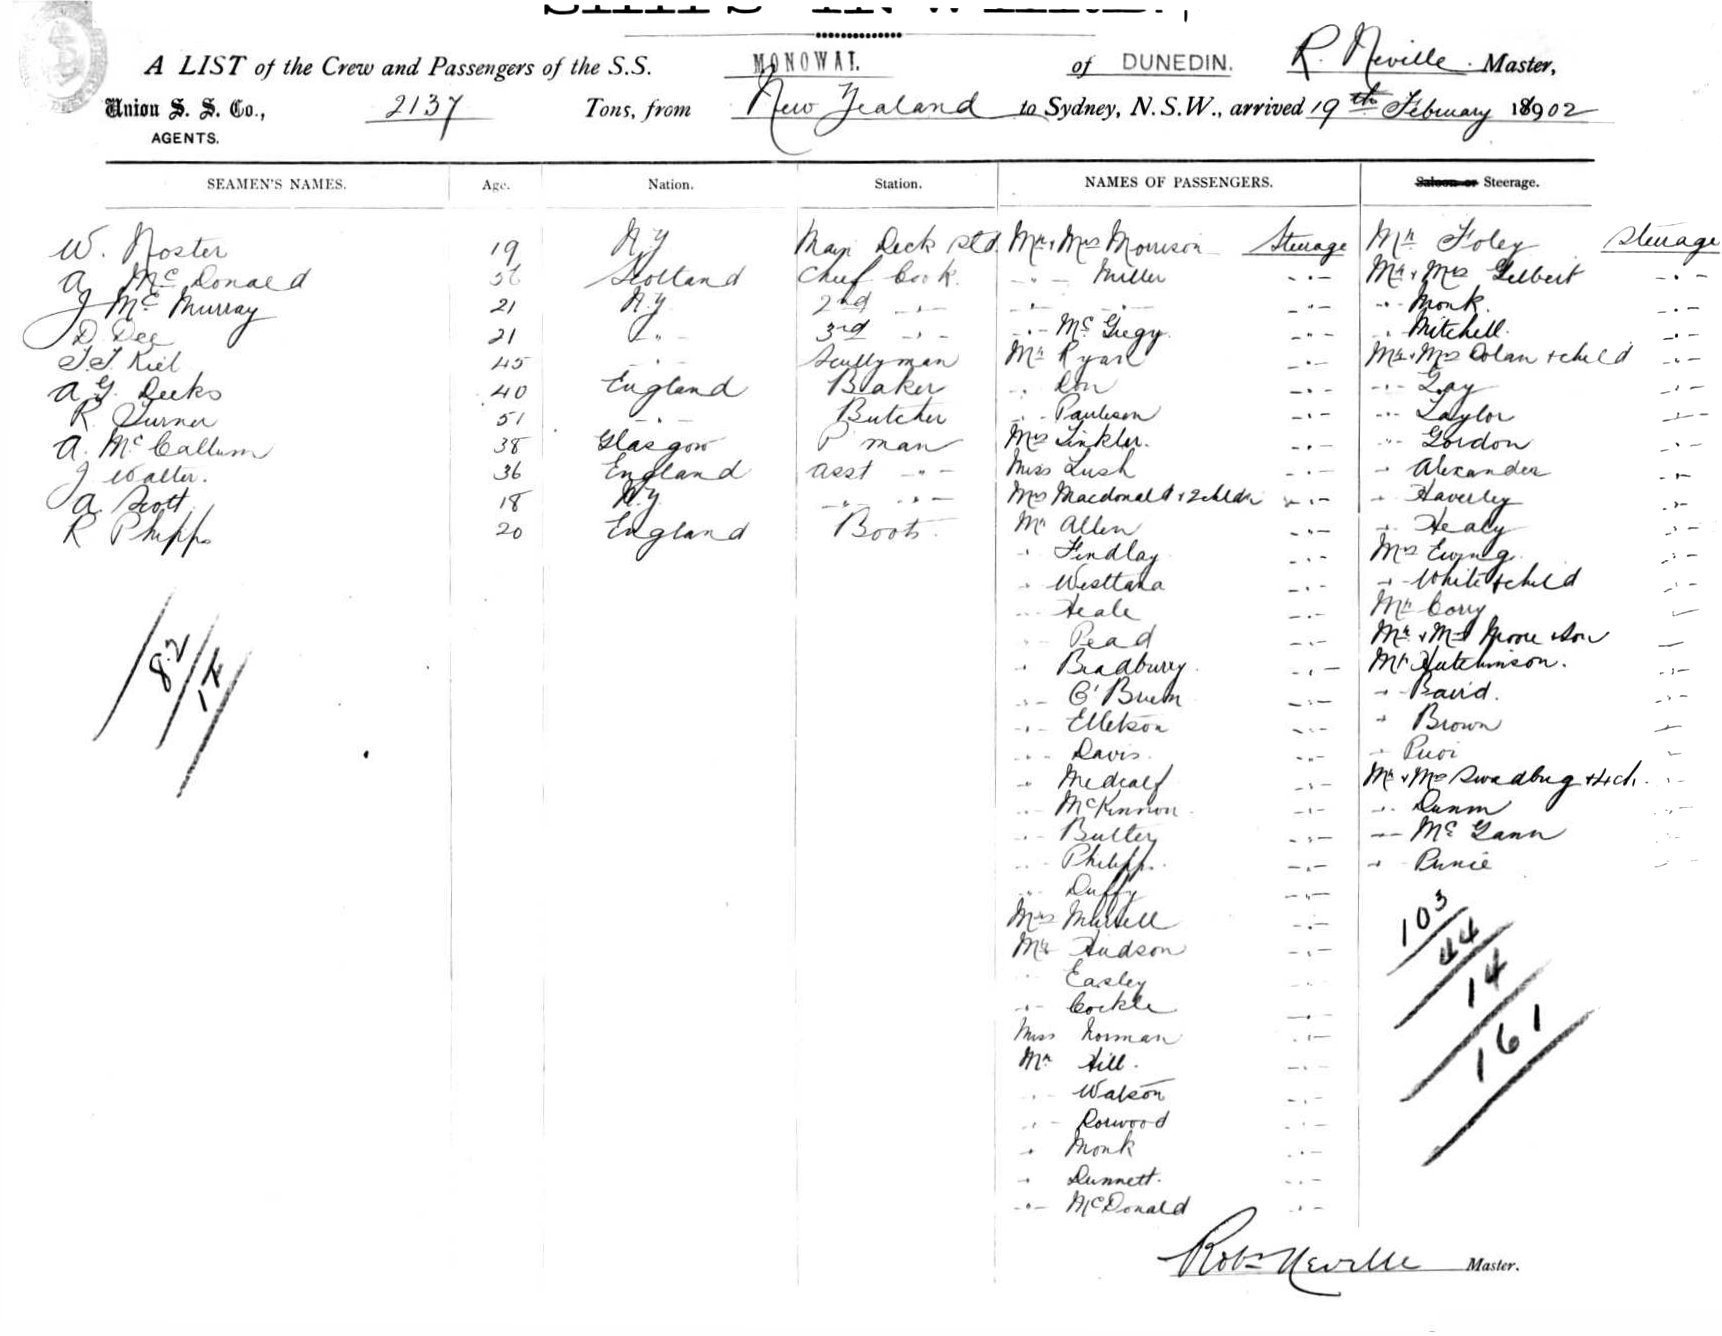 SHIPS INWARD.
A LIST of the Crew and Passengers of the S.S. MONOWAI. of DUNEDIN. R. Neville Master,
Union S. S. Co., 2137 Tons, from New Zealand to Sydney, N.S.W., arrived 19th February 18902
AGENTS.
SEAMEN'S NAMES. Age. Nation. Station. NAMES OF PASSENGERS. Saloon or Steerage.
W. Noster 19 N.Z Deck Std Mr & Mrs Morrison Steerage Mr Foley Steerage
A McDonald Scotland Chief Cook. " Miller " Mr & Mrs Gilbert "
J McMurray 21 N.Z 2nd " " " " Monk. "
D Dee 21 " 3rd " " McGregy. " " Mitchell. "
45 " Scullyman Mr Ryan " Mr & Mrs Dolan & child "
A G. Deeks 40 England Baker " " " Gay "
R. Turner 51 " Butcher " Paulson " " Taylor "
A. McCallum 38 Glasgow P man Mrs Tinkler. " " Gordon "
J Walter. 36 England asst " Miss Lush " " Alexander "
A Scott 18 N.Z " " Mrs Macdonald & 2 childn " " Haverley "
R Phipps 20 England Boots. Mr Allen " " Healy "
" Findlay " Mrs Ewing. "
" " " White & child "
" Heale " Mr Corry "
" Pead " Mr & Mrs Moore & Son "
" Bradbury. " Mr Hutchinson. "
" O'Brien " " Baird. "
" Elletson " " Brown "
" Davis. " "
" Medcalf " Mr & Mrs "
" McKinnon " " "
" " " McGann "
" Philipp. " "
" Duffy "
Mrs "
Mr Hudson "
" Easley "
" Cockle "
Miss Norman "
Mr Hill. "
" Watson "
" Dorwood "
" Monk "
" Dunnett. "
" McDonald "
82
14
103
44
14
161
Robt Neville Master.